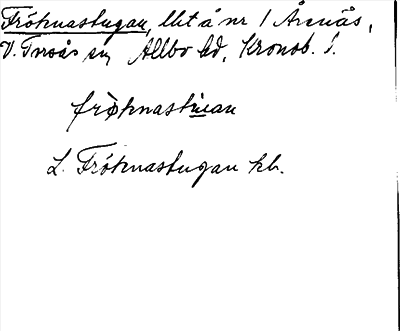 Fröknastugan, lht å nr 1 Årenäs,
V. Torsås sn, Allbo hd, Kronob. l.
fröknastu̇an
L. Fröknastugan kh.